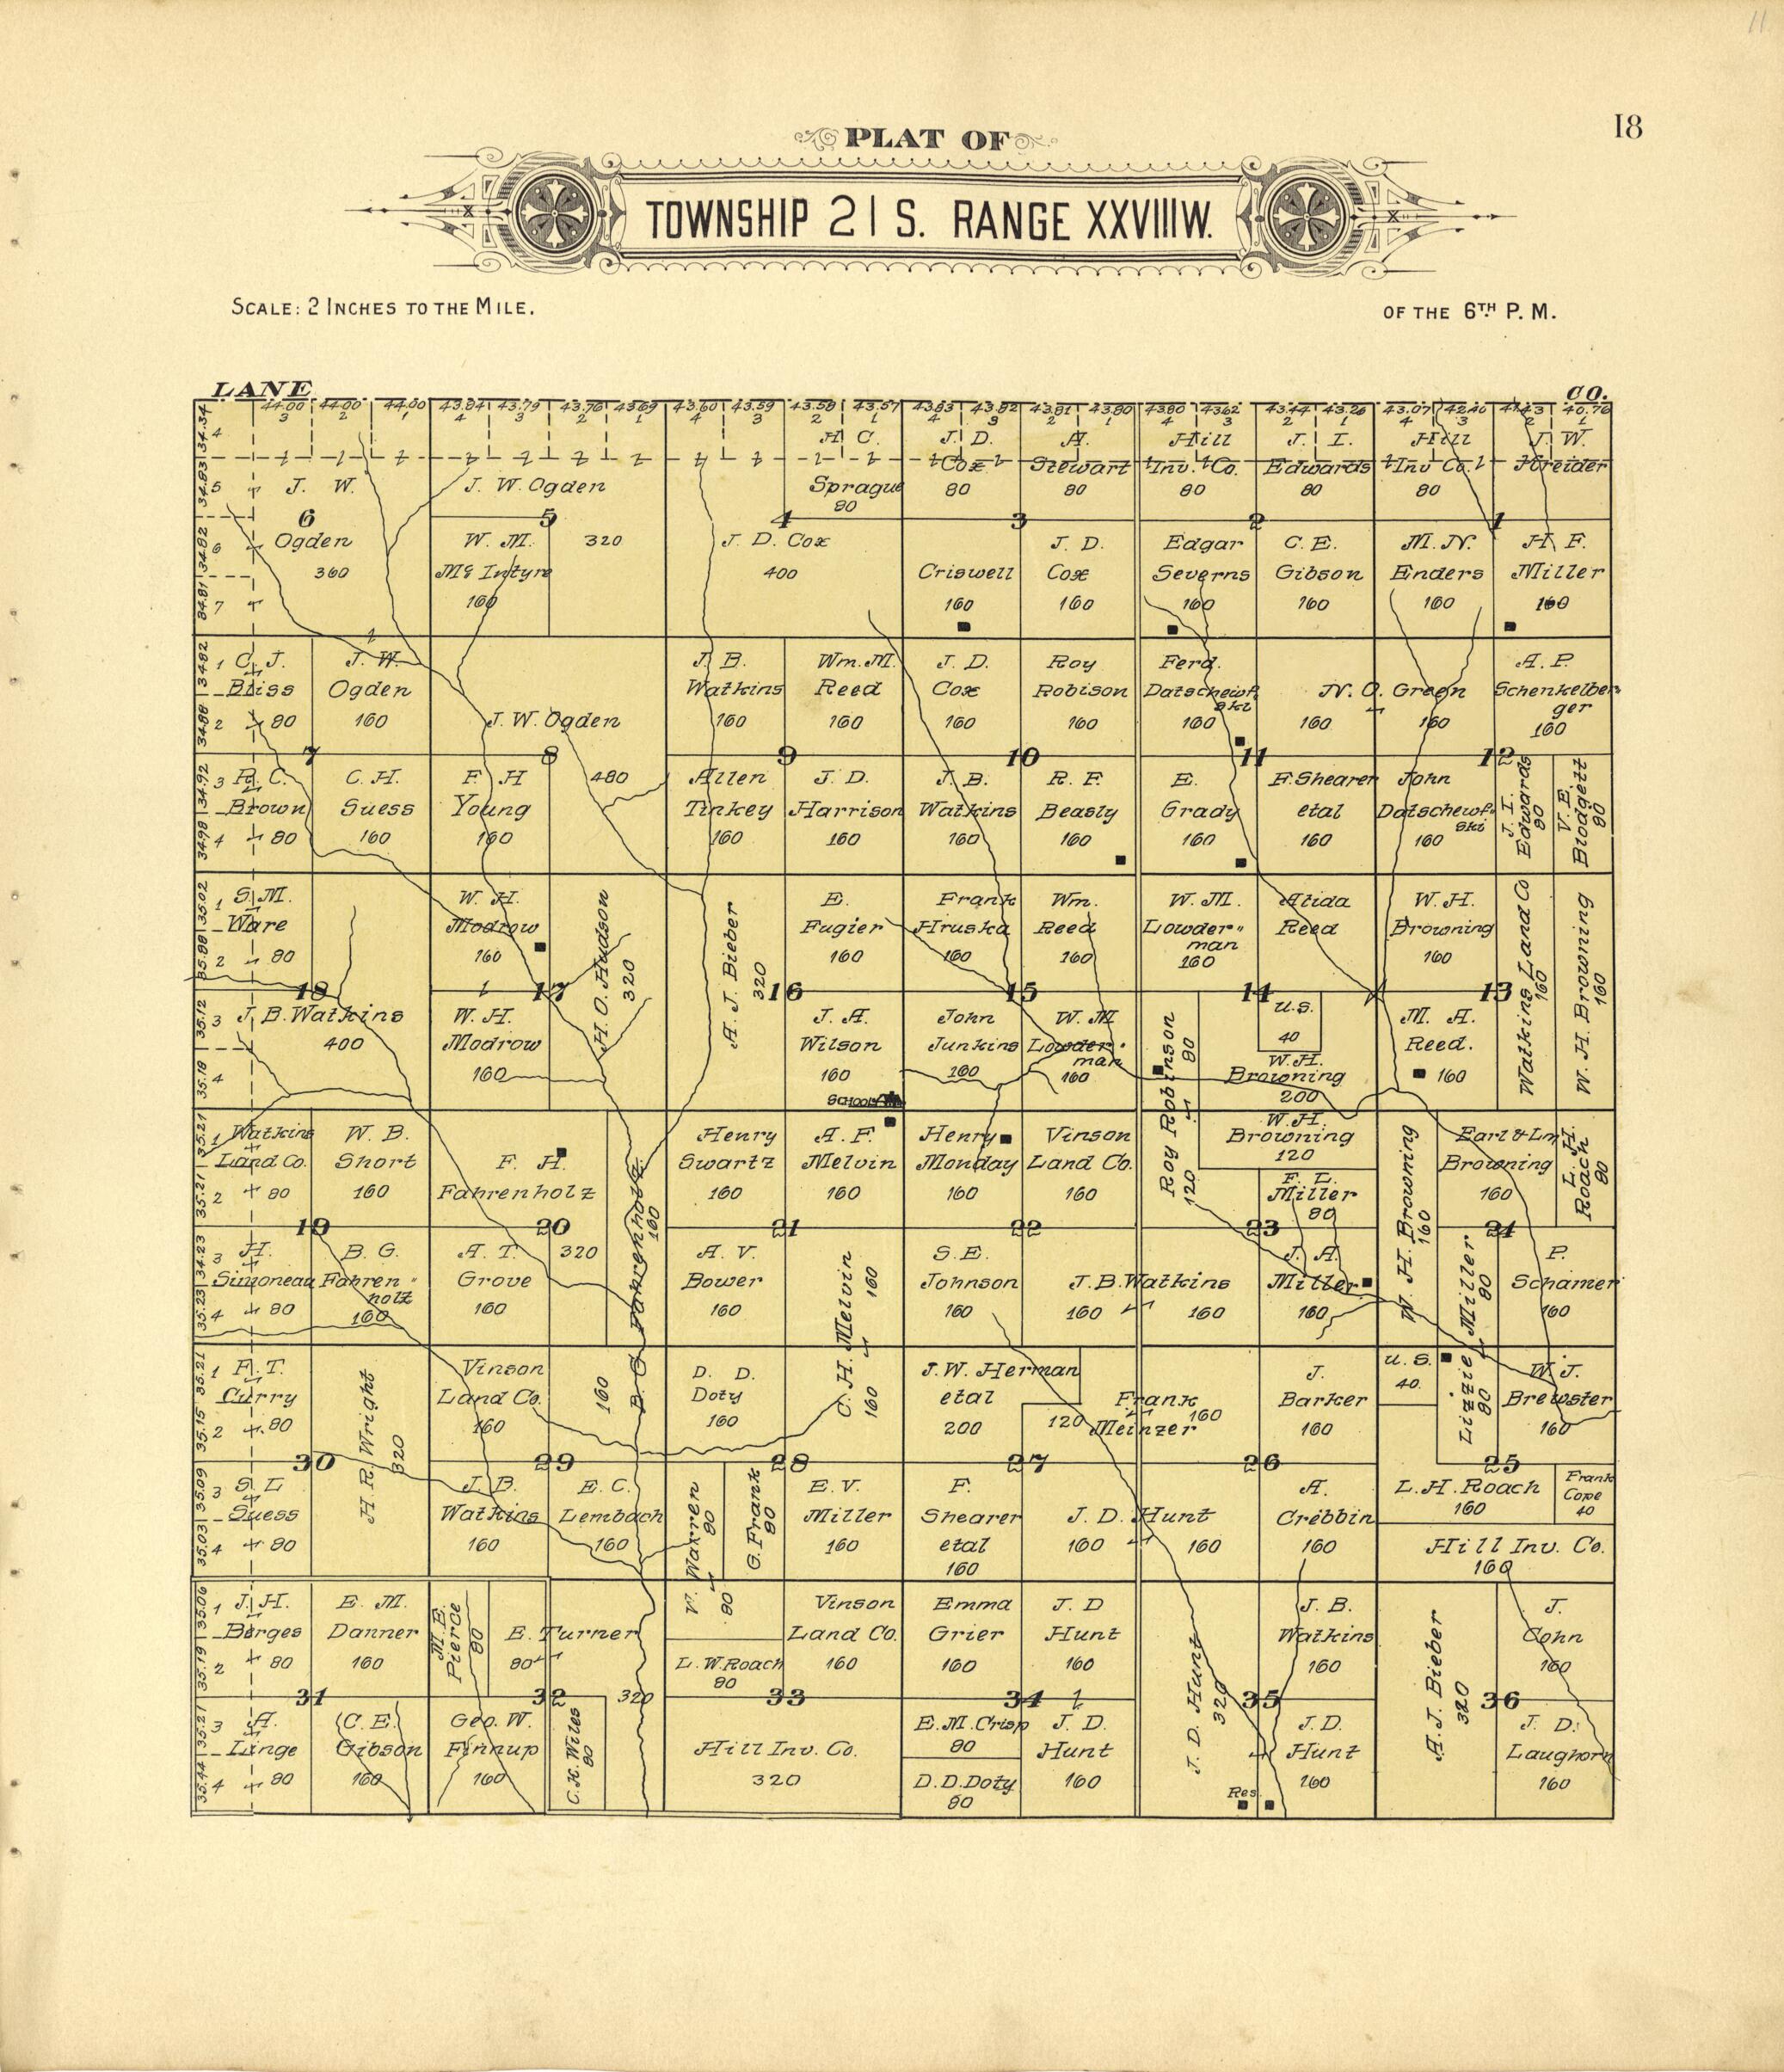 11
18
PLAT OF
TOWNSHIP 21 S. RANGE XXVIII W.
SCALE: 2 INCHES TO THE MILE.
OF THE 6TH P. M.
LANE
CO.
44.00 44.00 44.00 43.84 43.79 43.76 43.69 43.60 43.59 43.58 43.57 43.83 43.82 43.81 43.80 43.80 43.62 43.44 43.26 43.07 42.40 40.76
3 2 1 4 3 2 1 4 3 2 1 4 3 2 1 4 3 2 1 4 3 2 1
34.34
4
34.83
5
34.82
6
34.81
7
J. W.
Ogden
360
6
J. W. Ogden
320
5
W. M.
Mc Intyre
160
H C.
Sprague
80
4
J. D. Cox
400
J. D.
Cox
80
A.
Stewart
80
3
Criswell
160
J. D.
Cox
160
Hill
Inv. Co.
80
J. I.
Edwards
80
2
Edgar
Severns
160
C. E.
Gibson
160
Hill
Inv Co.
80
J. W.
Kreider
1
M. N.
Enders
160
H. F.
Miller
160
34.82
1
34.88
2
34.92
3
34.98
4
C. J.
Bliss
80
J. W.
Ogden
160
7
R. C.
Brown
80
C. H.
Suess
160
J. W. Ogden
480
8
F. H
Young
160
J. B.
Watkins
160
Wm. M.
Reed
160
9
Allen
Tinkey
160
J. D.
Harrison
160
J. D.
Cox
160
Roy
Robison
160
10
J. B.
Watkins
160
R. F.
Beasly
160
Ferd.
Datschewf
ski
160
N. O. Green
160
160
11
E.
Grady
160
F. Shearer
etal
160
A. P.
Schenkelber
ger
160
12
John
Datschewf-
ski
160
J. I.
Edwards
80
V. E.
Blodgett
80
35.02
1
2
35.12
3
35.18
4
S. M.
Ware
80
18
J. B. Watkins
400
W. H.
Modrow
160
17
W. H.
Modrow
160
H. O. Hudson
320
A. J. Bieber
320
16
E.
Fugier
160
J. A.
Wilson
160
SCHOOL
Frank
Hruska
160
Wm.
Reed
160
15
John
Junkins
160
W. M
Lowder-
man
160
W. M.
Lowder-
man
160
Alida
Reed
160
14
Roy Robinson
80
120
U.S.
40
W. H.
Browning
200
W. H.
Browning
160
13
M. A.
Reed.
160
Watkins Land Co
160
W. H. Browning
160
35.21
1
35.21
2
34.23
3
35.23
4
Watkins
Land Co.
80
W. B.
Short
160
19
H.
Simoneau
80
B. G.
Fahren-
holz
160
F. H.
Fahrenholz
320
20
A. T.
Grove
160
B. G. Fahrenholz
160
160
Henry
Swartz
160
A. F.
Melvin
160
21
A. V.
Bower
160
C. H. Melvin
160
160
Henry
Monday
160
Vinson
Land Co.
160
22
S. E.
Johnson
160
J. B. Watkins
160
160
W. H.
Browning
120
F. L.
Miller
80
23
J. A.
Miller
160
W. H. Browning
160
Earl & Lm
Browning
160
L. H.
Roach
80
24
Lizzie Miller
80
80
P.
Schamer
160
35.21
1
35.15
2
35.09
3
35.03
4
F. T.
Curry
80
H. R. Wright
320
30
S. L
Suess
80
Vinson
Land Co.
160
29
J. B.
Watkins
160
E. C.
Lembach
160
D. D.
Doty
160
28
V. Warren
80
80
G. Frank
80
E. V.
Miller
160
J. W. Herman
etal
200
27
F.
Shearer
etal
160
Frank
Meinzer
120
160
J. D. Hunt
160
160
J.
Barker
160
26
A.
Crebbin
160
U. S.
40
W. J.
Brewster
160
25
L. H. Roach
160
Frank
Cope
40
Hill Inv. Co.
160
35.06
1
35.19
2
35.21
3
35.44
4
J. H.
Borges
80
E. M.
Danner
160
31
A.
Linge
80
C. E.
Gibson
160
M. E.
Pierce
80
E. Turner
80
320
32
Geo. W.
Finnup
160
C. K. Wiles
80
L. W. Roach
80
Vinson
Land Co.
160
33
Hill Inv. Co.
320
Emma
Grier
160
J. D
Hunt
160
34
E. M. Crisp
80
D. D. Doty
80
J. D.
Hunt
160
J. D. Hunt
320
J. B.
Watkins
160
35
J. D.
Hunt
160
Res.
A. J. Bieber
320
J.
Cohn
160
36
J. D.
Laughorn
160